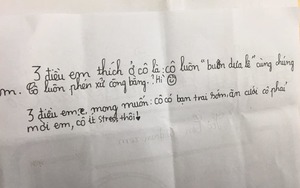 3 điều em thích ở cô là: cô luôn "buôn dưa lê" cùng chúng
m. Cô luôn phén xử công bằng.! Hì
3 điều em mong muốn: cô có bạn trai sớm, ăn cưới cô phải
mời em, cô ít stress thôi